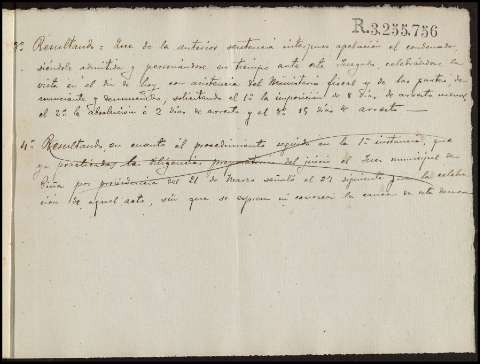 R.3.255.756
3º Resultando: Que de la anterior sentencia interpuso apelación el condenado,
siéndole admitida y personándose en tiempo ante este Juzgado, celebrándose la
vista en el día de hoy con asistencia del Ministerio fiscal y de las partes de-
nunciante y denunciados, solicitando el 1º la imposición de 8 días de arresto menor,
el 2º la absolución ó 2 días de arresto y el 3º 15 días de arresto
4º Resultando, en cuanto al procedimiento seguido en la 1ª instancia, que
ya practicadas las diligencias preparatorias del juicio el Juez municipal de
por providencia del 21 de Marzo señaló el 27 siguiente para la celebra-
ción de aquel acto, sin que se exprese ni conozca la causa de esta demora